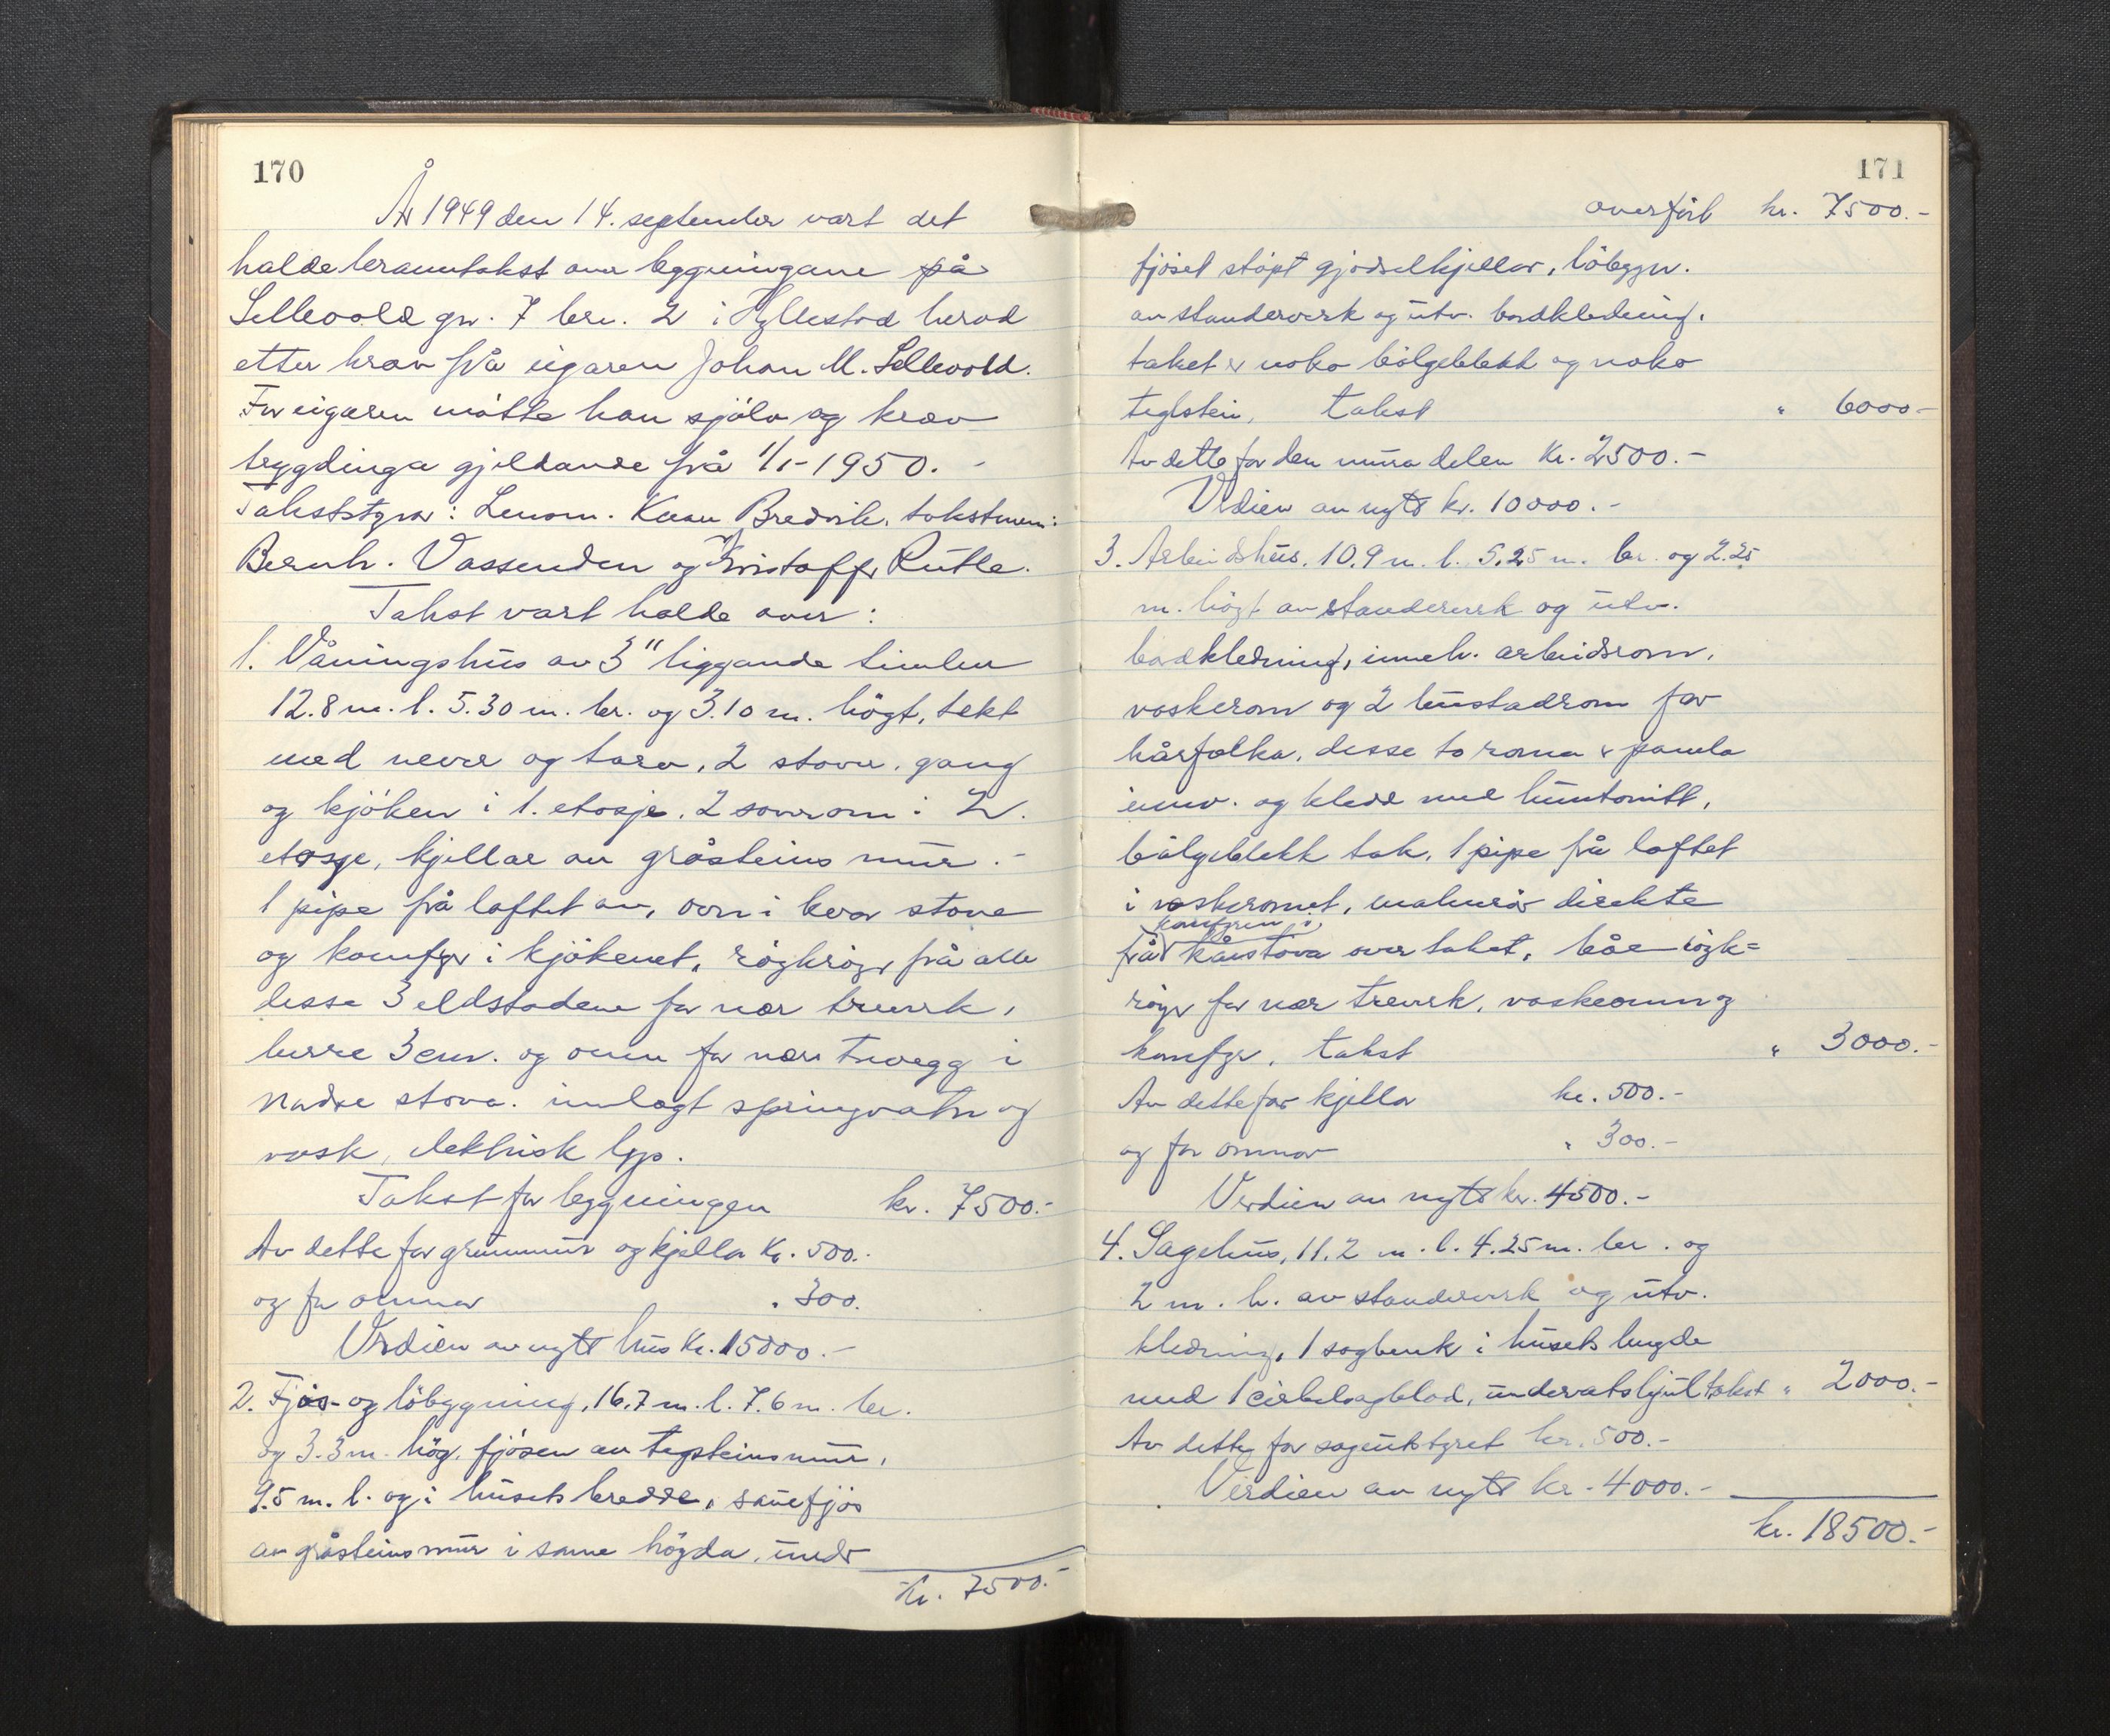 170
År 1949 den 14. september vart det
halde branntakst over bygningane på
Sellevold gn. 7 brn. 2 i Hyllestad herad
etter krav frå eigaren Johan M. Sellevold.
For eigaren møtte han sjølv og krav
trygdinga gjeldande frå 1/1-1950. -
Takststyrar: Lensm. Bredvik, takstmenn:
Bernh. Vassenden og Kristoffer Rutle.
Takst vart halde over:
1. Våningshus av 3" liggande timber
12.8 m. l. 5.30 m. br. og 3.10 m. högt, tekt
med never og torv, 2 stover, gang
og kjöken i 1. etasje, 2 soverom i 2.
etasje, kjellar av gråsteins mur. -
1 pipe frå loftet av, ovn i kvar stove
og komfyr i kjökenet, rögkröyr frå alle
desse 3 eldstadene for nær treverk,
berre 3 cm. og omn for nær trevegg i
nedre stova. innlagt springvatn og
vask, elektrisk lys.
Takst for bygningen kr. 7500.-
Av dette for grunnmur og kjellar Kr. 500.-
og for omnar " 300.
Verdien av nytt hus Kr. 15000.-
2. Fjös- og löbygning, 16,7 m. l. 7.6 m. br.
og 3.3 m. hög, fjösen av teglsteinsmur,
9.5 m. l. og i husets bredde, sauefjös
av gråsteinsmur i same högda, under
Kr. 7500.-
171
overfört kr. 7500.-
fjöset stöpt gjödselkjellar, löbygn.
av standerverk og utv. bordkledning,
taket er noko bölgeblekk og noko
teglstein, takst " 6000-
Av dette for den mura delen Kr. 2500.-
Verdien av nytt kr. 10000.-
3. Arbeidshus, 10.9 m. l. 5,25 m. br. og 2.25
m. högt av standerverk og utv.
bordkledning, inneh. arbeidsrom,
vaskerom og 2 bustadrom for
kårfolka, desse to roma er panela
innv. og kledd med huntonitt,
bölgeblekk tak, 1 pipe frå loftet
i vaskeromet, direkte
komfyren i
frå kårstova over taket, båe rögk=
röyr for nær treverk, vaskeomn og
komfyr, takst " 3000.-
Av dette for kjellar kr. 500.-
og for omnar " 300.-
Verdien av nytt kr. 4500.-
4. Sagehus, 11.2 m. l. 4.25 m. br. og
2 m. h. av standerverk og utv.
kledning, 1 sagbenk i husets lengde
med 1 cirkelsagblad, undervatshjul takst " 2000.-
Av dette for sagutstyret kr. 500.-
Verdien av nytt kr. 4000.-
kr. 18500.-